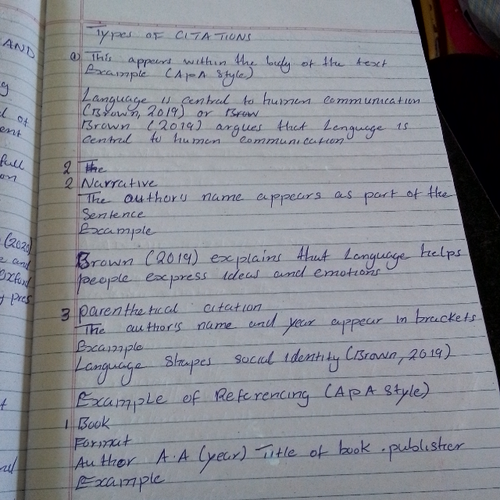 AND
Types of CITATIONS
a) This appears within the body of the text
Example (APA Style)
Language is central to human communication
(Brown, 2019) or Brow
Brown (2019) argues that Language is
central to human communication
2 The
2 Narrative
The author's name appears as part of the
Sentence
Example
Brown (2019) explains that Language helps
people express ideas and emotions
3 parenthetical citation
The author's name and year appear in brackets
Example
Language Shapes social identity (Brown, 2019)
Example of Referencing (APA Style)
1 Book
Format
Author A.A (year) Title of book. publisher
Example